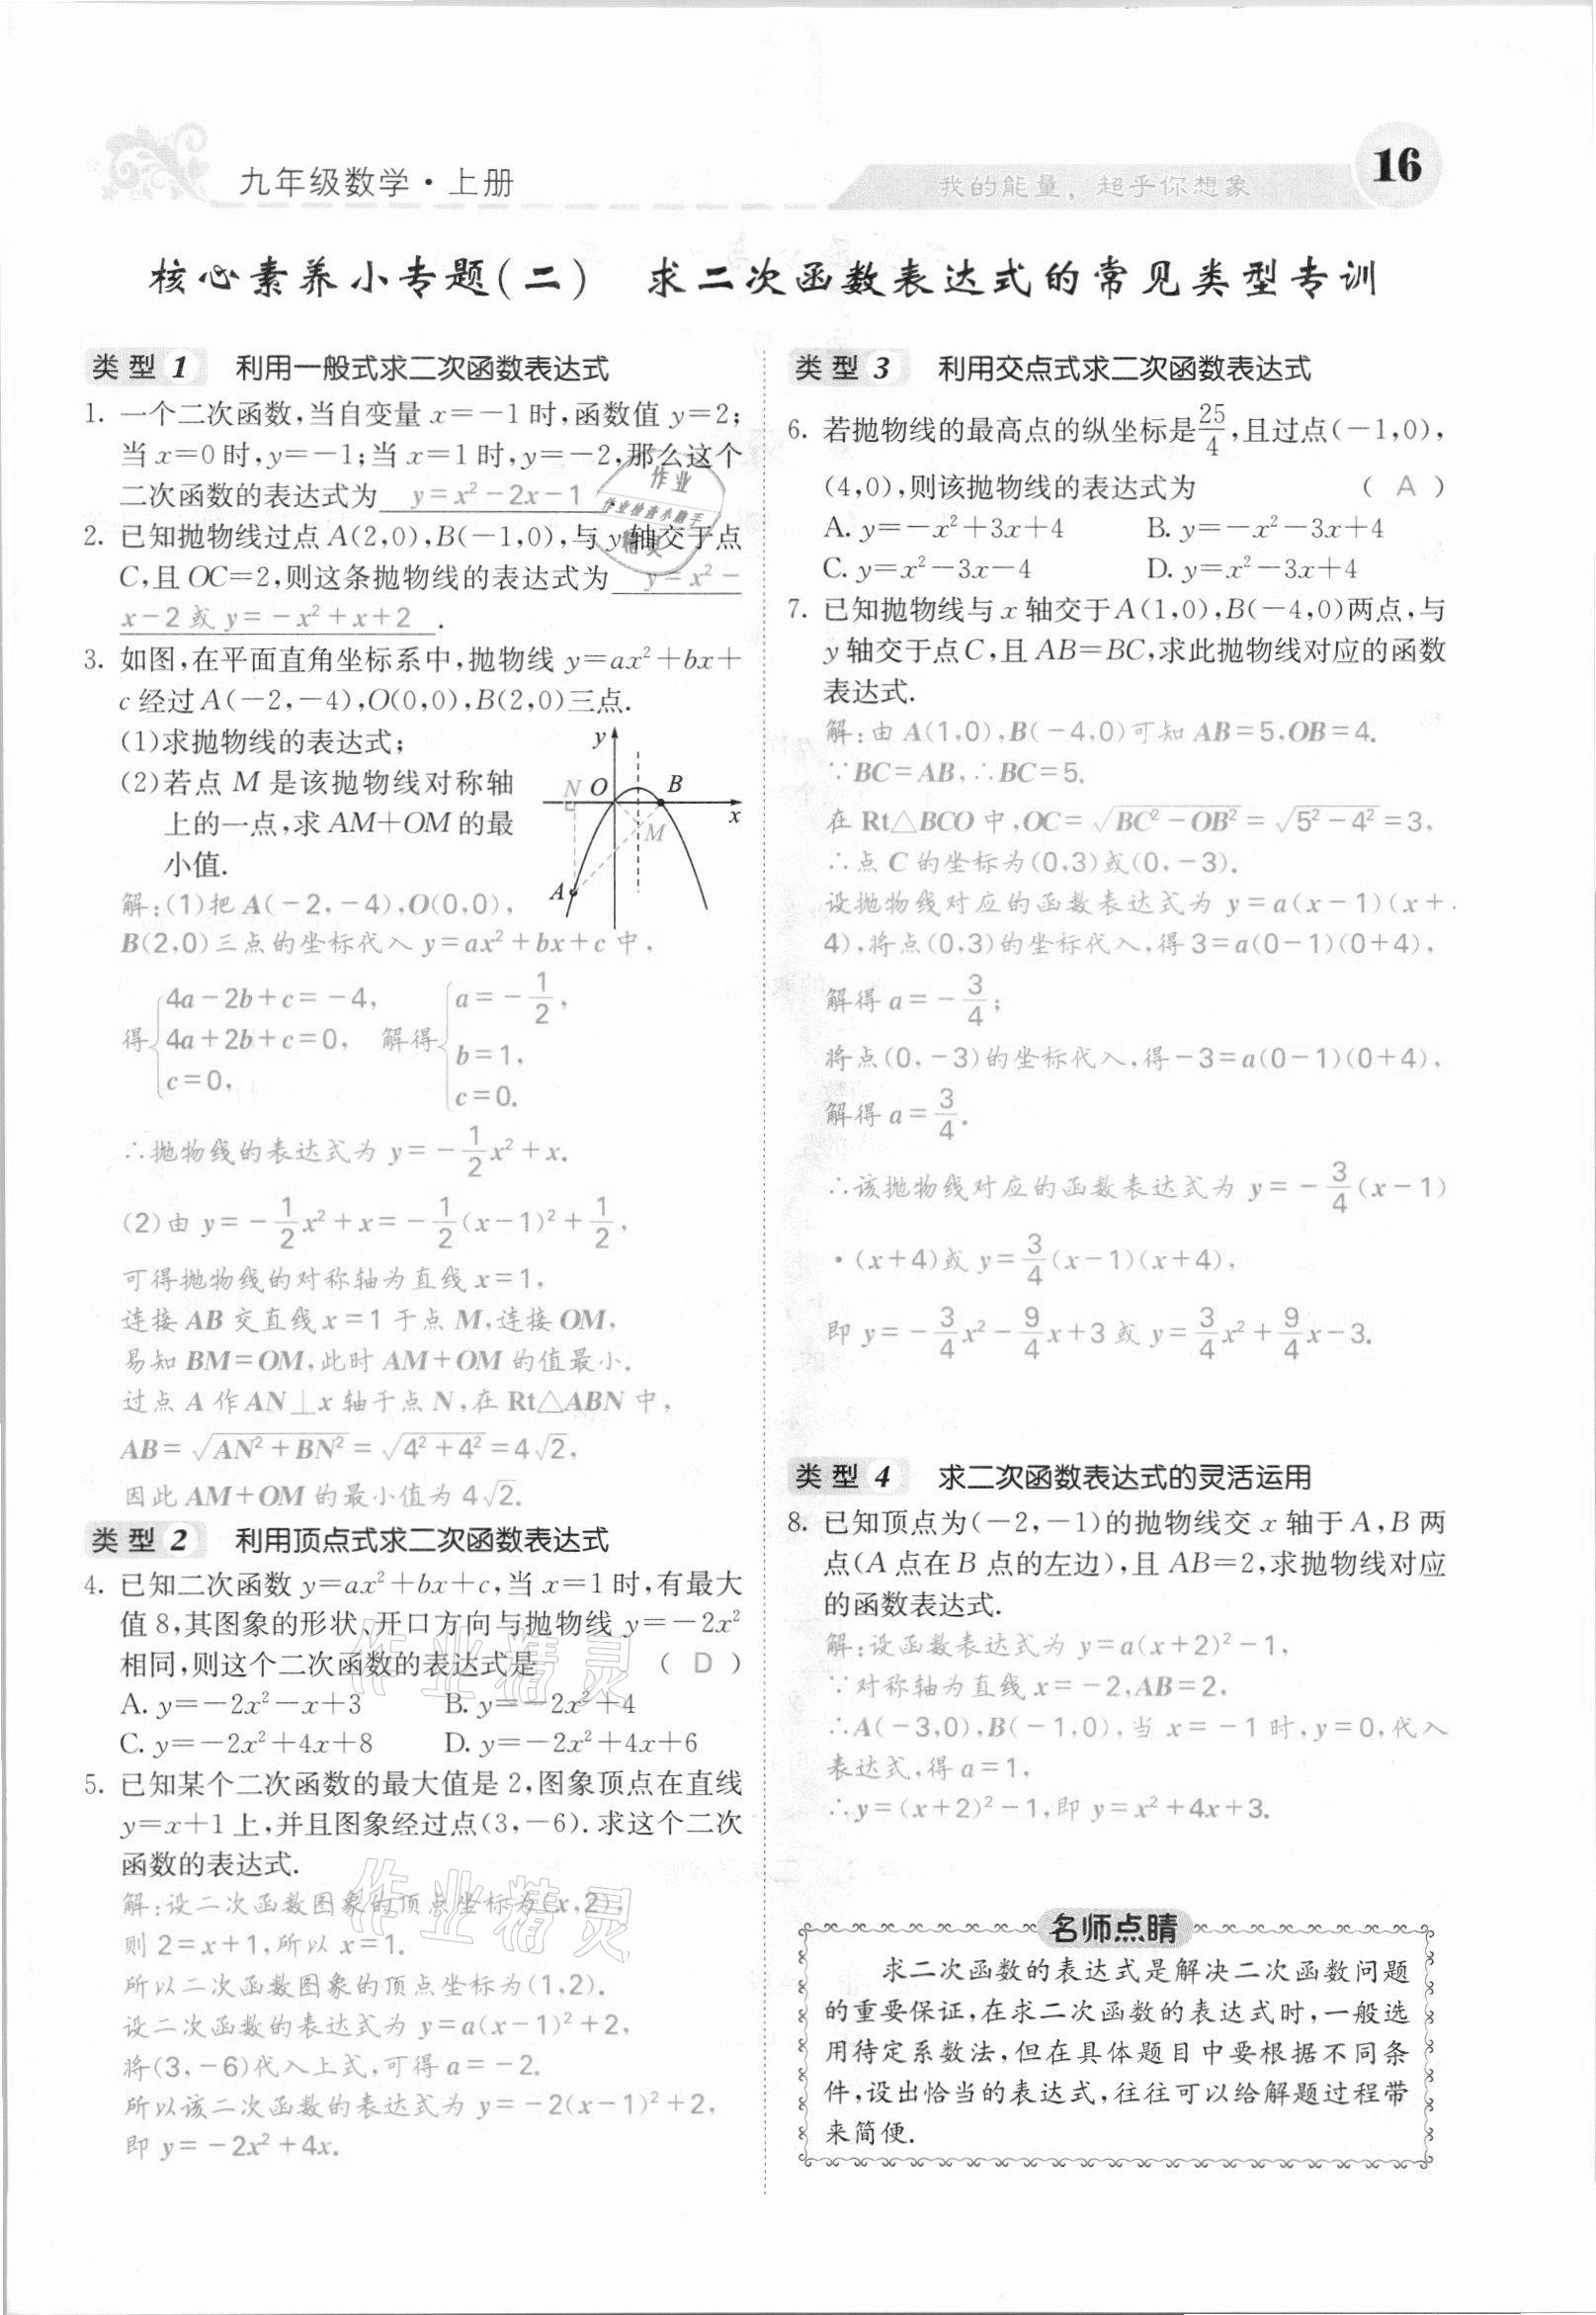 九年级数学·上册
我的能量，超乎你想象
16
核心素养小专题(二)　求二次函数表达式的常见类型专训
类型1　利用一般式求二次函数表达式
1. 一个二次函数,当自变量 x=-1 时,函数值 y=2;
当 x=0 时,y=-1;当 x=1 时,y=-2,那么这个
二次函数的表达式为 y=x²-2x-1 .
2. 已知抛物线过点 A(2,0),B(-1,0),与 y 轴交于点
C,且 OC=2,则这条抛物线的表达式为 y=x²-
x-2 或 y=-x²+x+2 .
3. 如图,在平面直角坐标系中,抛物线 y=ax²+bx+
c 经过 A(-2,-4),O(0,0),B(2,0)三点.
(1)求抛物线的表达式;
(2)若点 M 是该抛物线对称轴
上的一点,求 AM+OM 的最
小值.
y
N O B
x
M
A
解:(1)把 A(-2,-4),O(0,0),
B(2,0)三点的坐标代入 y=ax²+bx+c 中,
得{4a-2b+c=-4, 4a+2b+c=0, c=0, 解得{a=-1/2, b=1, c=0.
∴抛物线的表达式为 y=-1/2x²+x.
(2)由 y=-1/2x²+x=-1/2(x-1)²+1/2,
可得抛物线的对称轴为直线 x=1,
连接 AB 交直线 x=1 于点 M,连接 OM,
易知 BM=OM,此时 AM+OM 的值最小.
过点 A 作 AN⊥x 轴于点 N,在 Rt△ABN 中,
AB=√(AN²+BN²)=√(4²+4²)=4√2,
因此 AM+OM 的最小值为 4√2.
类型2　利用顶点式求二次函数表达式
4. 已知二次函数 y=ax²+bx+c,当 x=1 时,有最大
值 8,其图象的形状、开口方向与抛物线 y=-2x²
相同,则这个二次函数的表达式是 ( D )
A. y=-2x²-x+3　B. y=-2x²+4
C. y=-2x²+4x+8　D. y=-2x²+4x+6
5. 已知某个二次函数的最大值是 2,图象顶点在直线
y=x+1 上,并且图象经过点(3,-6).求这个二次
函数的表达式.
解:设二次函数图象的顶点坐标为(x,2),
则 2=x+1,所以 x=1.
所以二次函数图象的顶点坐标为(1,2).
设二次函数的表达式为 y=a(x-1)²+2,
将(3,-6)代入上式,可得 a=-2.
所以该二次函数的表达式为 y=-2(x-1)²+2,
即 y=-2x²+4x.
类型3　利用交点式求二次函数表达式
6. 若抛物线的最高点的纵坐标是25/4,且过点(-1,0),
(4,0),则该抛物线的表达式为 ( A )
A. y=-x²+3x+4　B. y=-x²-3x+4
C. y=x²-3x-4　D. y=x²-3x+4
7. 已知抛物线与 x 轴交于 A(1,0),B(-4,0)两点,与
y 轴交于点 C,且 AB=BC,求此抛物线对应的函数
表达式.
解:由 A(1,0),B(-4,0)可知 AB=5,OB=4.
∵BC=AB,∴BC=5.
在 Rt△BCO 中,OC=√(BC²-OB²)=√(5²-4²)=3,
∴点 C 的坐标为(0,3)或(0,-3).
设抛物线对应的函数表达式为 y=a(x-1)(x+
4),将点(0,3)的坐标代入,得 3=a(0-1)(0+4),
解得 a=-3/4;
将点(0,-3)的坐标代入,得-3=a(0-1)(0+4),
解得 a=3/4.
∴该抛物线对应的函数表达式为 y=-3/4(x-1)
·(x+4)或 y=3/4(x-1)(x+4),
即 y=-3/4x²-9/4x+3 或 y=3/4x²+9/4x-3.
类型4　求二次函数表达式的灵活运用
8. 已知顶点为(-2,-1)的抛物线交 x 轴于 A,B 两
点(A 点在 B 点的左边),且 AB=2,求抛物线对应
的函数表达式.
解:设函数表达式为 y=a(x+2)²-1,
∵对称轴为直线 x=-2,AB=2,
∴A(-3,0),B(-1,0),当 x=-1 时,y=0,代入
表达式,得 a=1,
∴y=(x+2)²-1,即 y=x²+4x+3.
名师点睛
求二次函数的表达式是解决二次函数问题
的重要保证,在求二次函数的表达式时,一般选
用待定系数法,但在具体题目中要根据不同条
件,设出恰当的表达式,往往可以给解题过程带
来简便.
作业
作业检查小助手
精灵
作业精灵
作业精灵